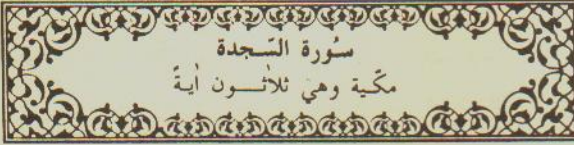 سُورة السّجدة
مكّية وهيَ ثلاثـــون اٰيةً